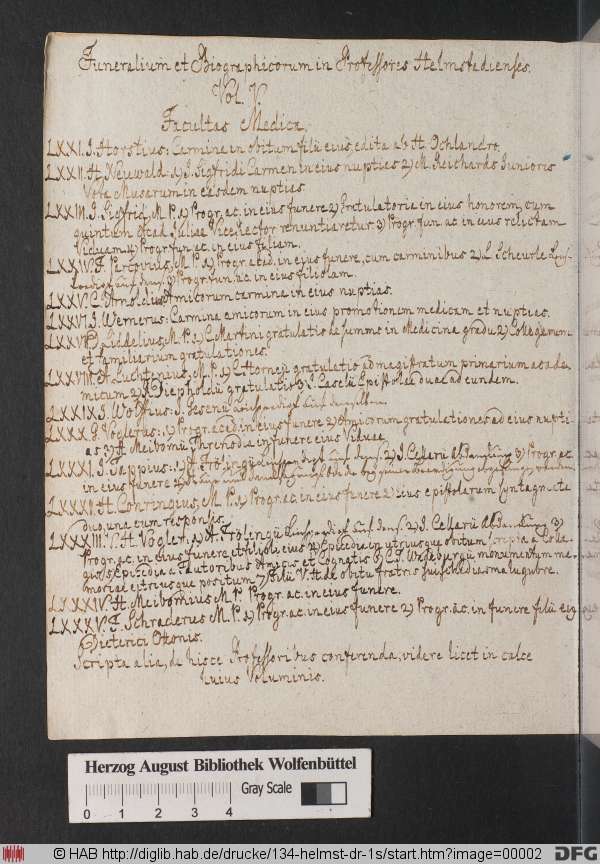 Funeralium et Biographicorum in Professores Helmstadienses.
Vol. V.
Facultas Medica,
LXXI. J. Horstius: Carmina in obitum filii eius edita ab H. Ochlandro.
LXXII. H. Neuwald: 1) J. Sigfridi Carmen in eius nuptias 2) M. Reichards Juniores
Vota Musarum in easdem nuptias.
LXXIII. J. Sigfrid, M. P. 1) Progr. ac. in eius funere 2) Gratulatoria in eius honorem, cum
quintum Acad. Juliae ViceRector renuntiaretur 3) Progr. fun. ac. in eius relictam
Viduam 4) Progr. fun. ac. in eius filiam.
LXXIV. F. Parcovius, M. P. 1) Progr. acad. in eius funere, cum carminibus 2) L. Scheurle
3) Progr. fun. ac. in eius filiolam.
LXXV. C. Arnoldus: Amicorum carmina in eius nuptias.
LXXVI. J. Wernerus: Carmina amicorum in eius promotionem medicam et nuptias.
LXXVII. D. Liddelius, M. P. 1) C. Martini gratulatio de summo in Medicina gradu 2) Collegarum
et familiarium gratulationes.
LXXVIII. H. Luchtenius, M. P. 1) C. Horneji gratulatio ad magistratum primarium academicum
2) Diepholdii gratulatio 3) J. Caselii Epistolae duae ad eundem.
LXXIX. J. Wolfius: J. Gesenii
LXXX. G. Voglerus: 1) Progr. acad. in eius funere 2) Amicorum gratulationes ad eius nupti-
as 3) H. Meibomii Threnodia in funere eius Viduae.
LXXXI. J. Tappius: 1) H. Frölingii 2) J. Cellarii Abdankung 3) Progr. ac.
in eius funere
LXXXII. H. Conringius, M. P. 1) Progr. ac. in eius funere 2) Eius epistolarum Syntagmata
duo, una cum responsis.
LXXXIII. V. H. Vogler: 1) H. Frölingii 2) J. Cellarii Abdankung 3)
Progr. ac. in eius funere et filioli eius 4) Epicedia in utriusque obitum scripta a Colle-
gis 5) Epicedia a Fautoribus Amicis et Cognatis 6) C. T. Wedeburgii monumentum me-
moriae utriusque positum 7) Filii V. H. de obitu fratris sui schediasma lugubre.
LXXXIV. H. Meibomius M. P. Progr. ac. in eius funere.
LXXXV. F. Schraderus M. P. 1) Progr. ac. in eius funere 2) Progr. ac. in funere filii eius
Dieterici Ottonis.
Scripta alia, de hisce Professoribus conferenda, videre licet in calce
huius Voluminis.
Herzog August Bibliothek Wolfenbüttel
0 1 2 3 4 Gray Scale
© HAB http://diglib.hab.de/drucke/134-helmst-dr-1s/start.htm?image=00002
DFG